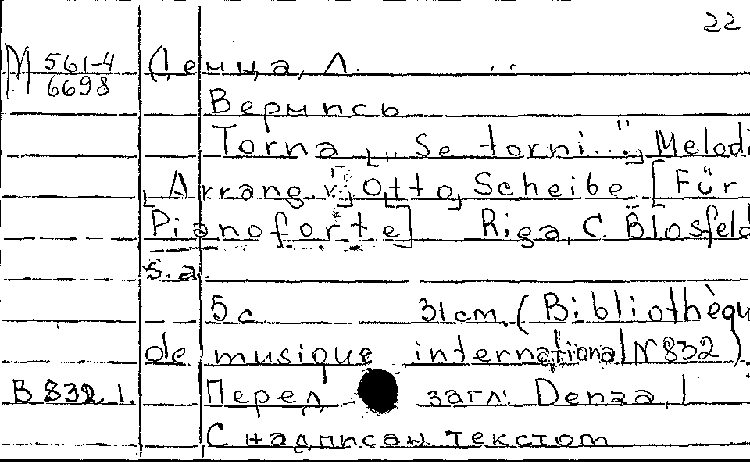 22
М 561-4 Денца, Л.
6698
Вернись
Torna „Se torni..." Melodi
Arrang. v. Otto Scheibe [Für
Pianoforte] Riga, C. Blosfeld
s. a.
5 с. 31 cm. (Bibliothèqu
de musique international N 832)
В 832 1. Перед загл: Denza, l
С надписан. текстом